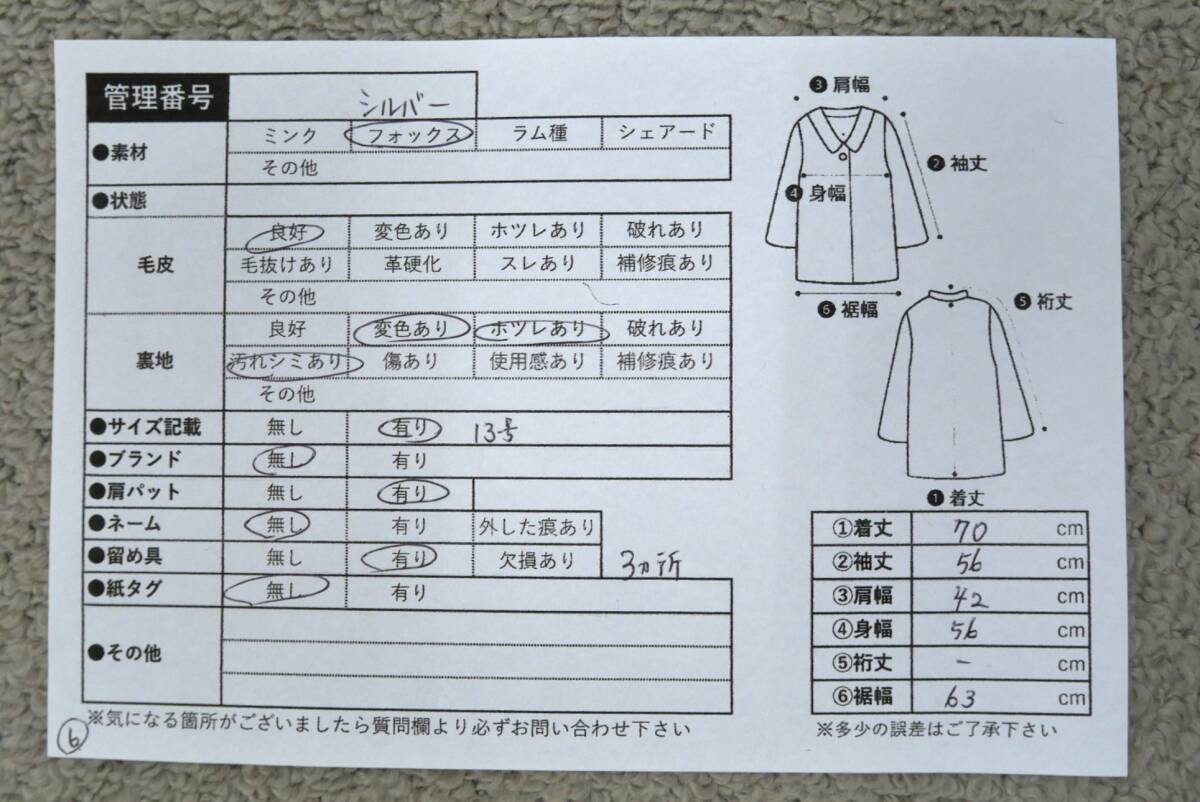 管理番号
シルバー
●素材 ミンク フォックス ラム種 シェアード
その他
●状態
毛皮 良好 変色あり ホツレあり 破れあり
毛抜けあり 革硬化 スレあり 補修痕あり
その他
裏地 良好 変色あり ホツレあり 破れあり
汚れシミあり 傷あり 使用感あり 補修痕あり
その他
●サイズ記載 無し 有り 13号
●ブランド 無し 有り
●肩パット 無し 有り
●ネーム 無し 有り 外した痕あり
●留め具 無し 有り 欠損あり 3ヵ所
●紙タグ 無し 有り
●その他
※気になる箇所がございましたら質問欄より必ずお問い合わせ下さい
6
❸肩幅
❷袖丈
❹身幅
❻裾幅
❺裄丈
❶着丈
①着丈 70 cm
②袖丈 56 cm
③肩幅 42 cm
④身幅 56 cm
⑤裄丈 - cm
⑥裾幅 63 cm
※多少の誤差はご了承下さい